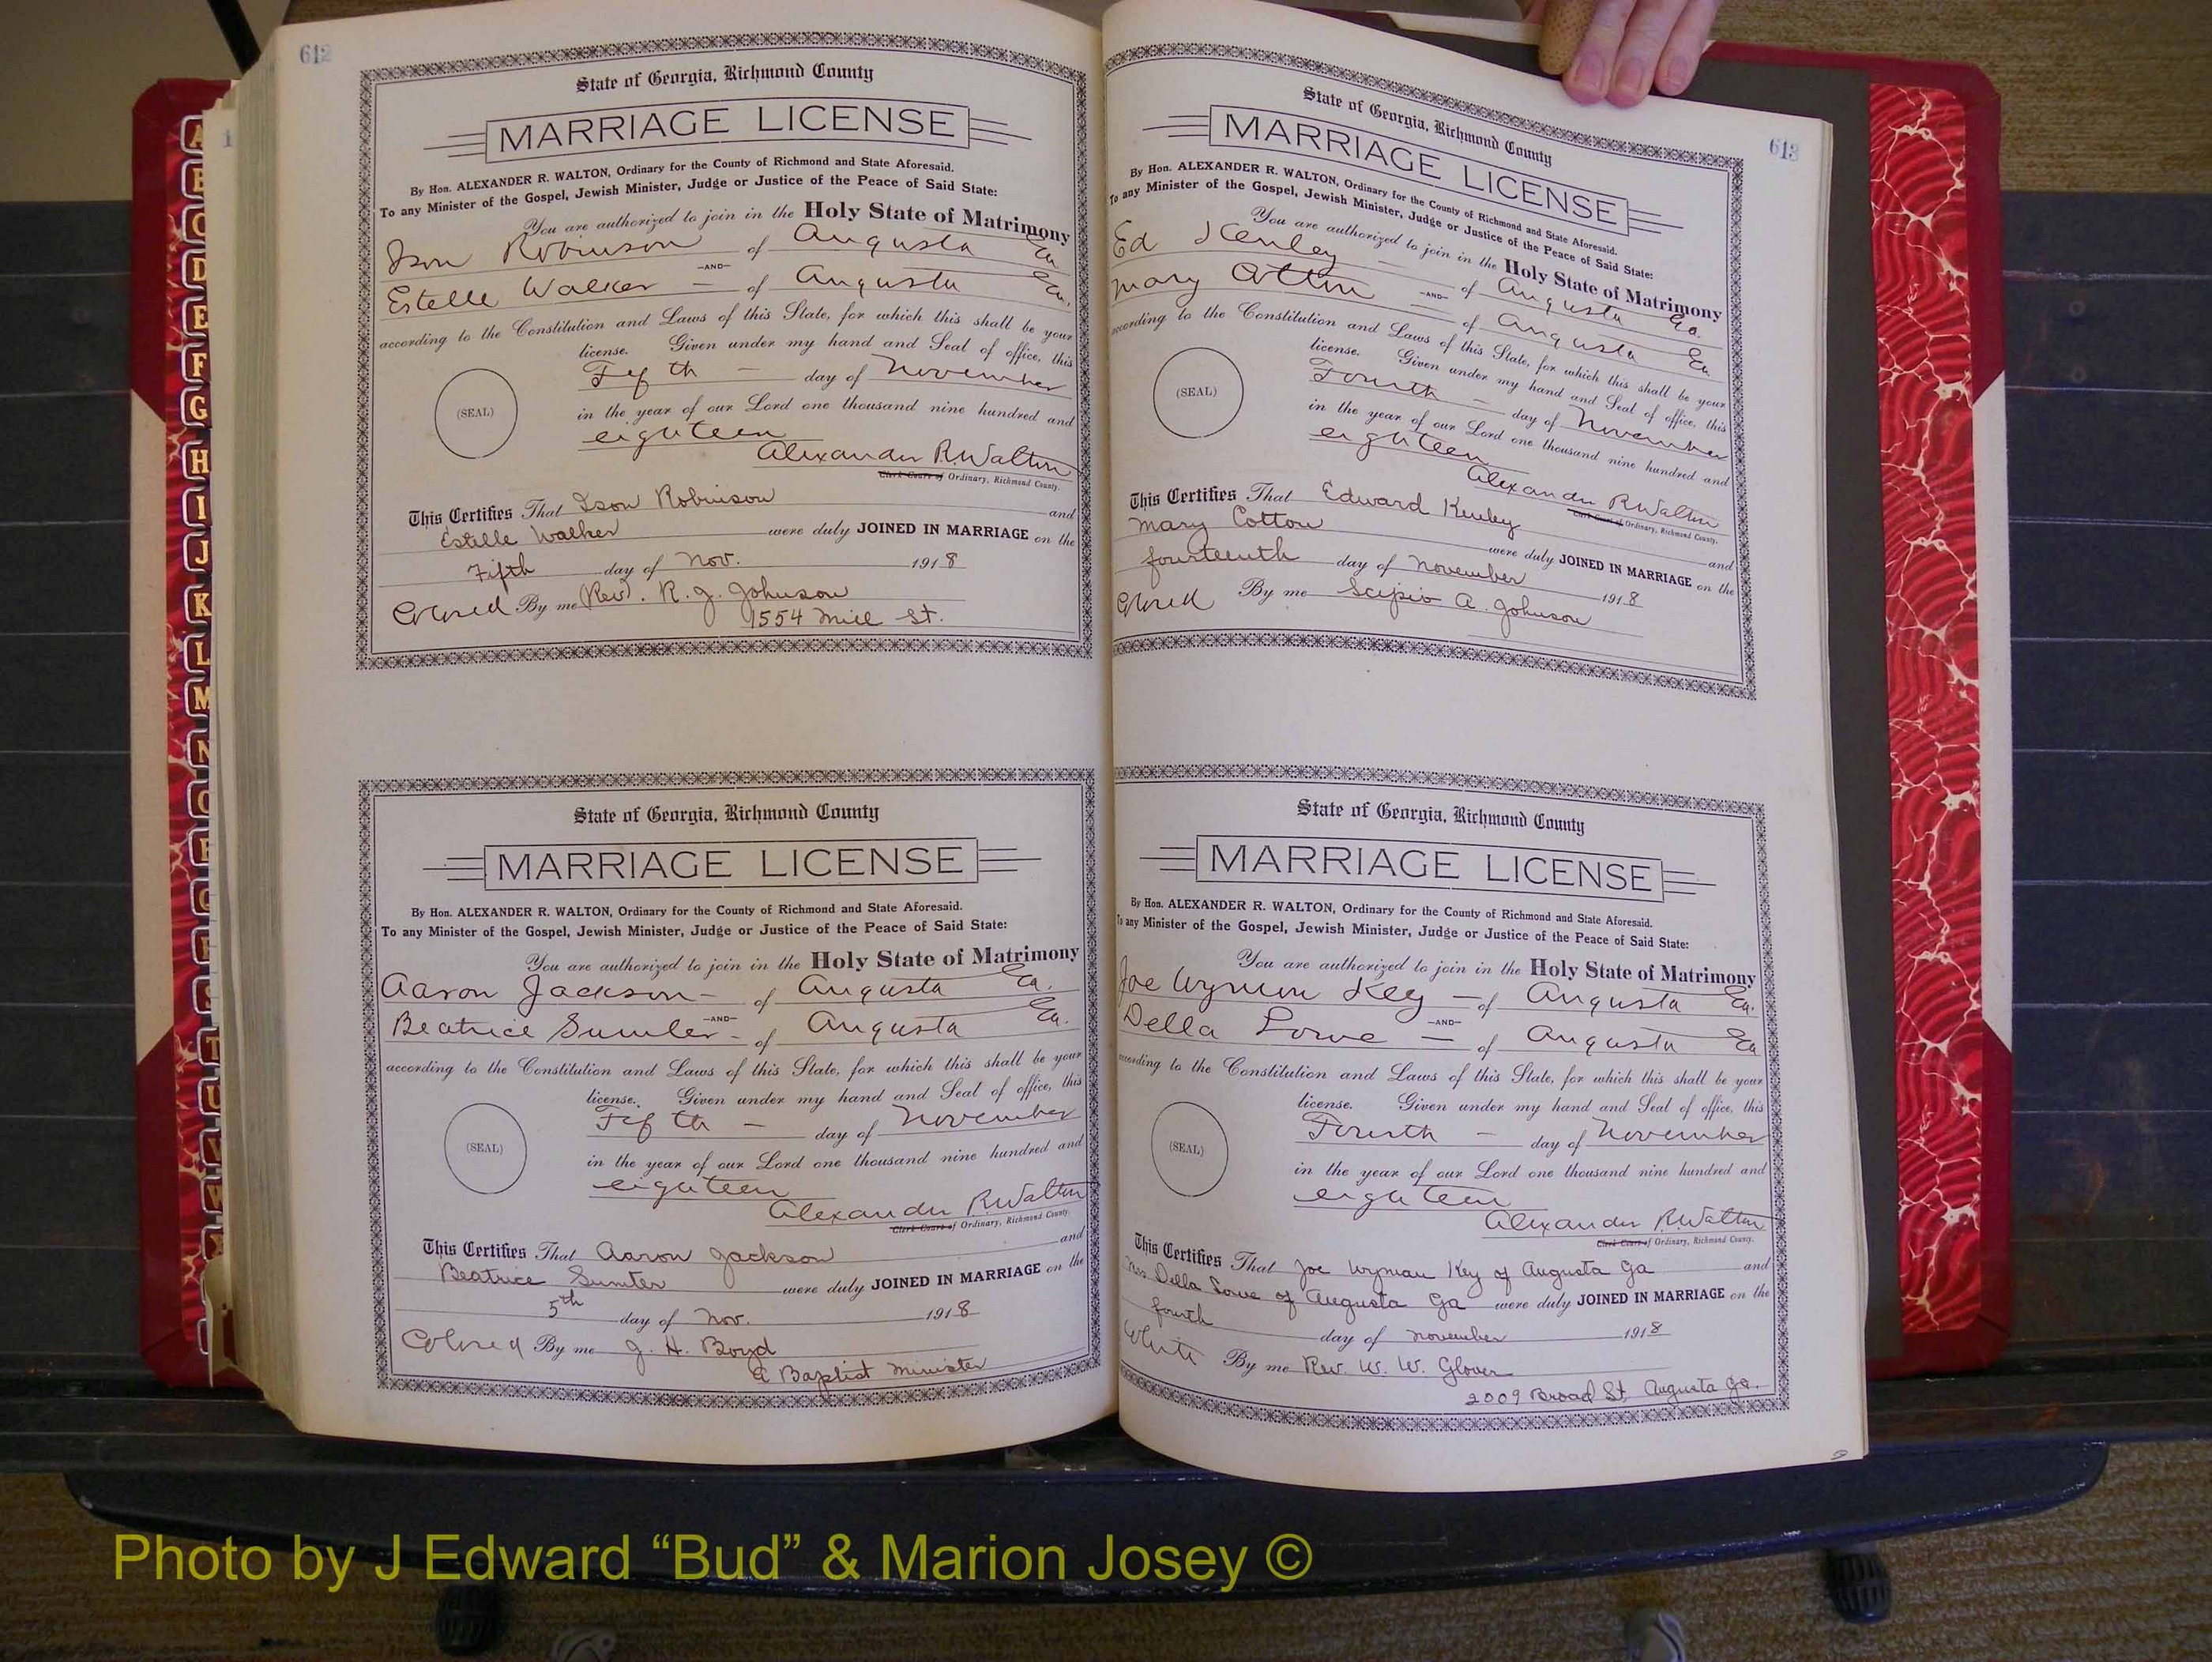 612
State of Georgia, Richmond County
MARRIAGE LICENSE
By Hon. ALEXANDER R. WALTON, Ordinary for the County of Richmond and State Aforesaid.
To any Minister of the Gospel, Jewish Minister, Judge or Justice of the Peace of Said State:
You are authorized to join in the Holy State of Matrimony
Ison Robinson of Augusta Ga
—AND—
Estelle Walker — of Augusta Ga.
according to the Constitution and Laws of this State, for which this shall be your
license. Given under my hand and Seal of office, this
Fifth — day of November
(SEAL)
in the year of our Lord one thousand nine hundred and
eighteen
Alexander R. Walton
Clerk Court of Ordinary, Richmond County.
This Certifies That Ison Robinson and
Estelle Walker were duly JOINED IN MARRIAGE on the
Fifth day of Nov. 1918
Colored By me Rev. R. J. Johnson
1554 Mill St.
State of Georgia, Richmond County
MARRIAGE LICENSE
By Hon. ALEXANDER R. WALTON, Ordinary for the County of Richmond and State Aforesaid.
To any Minister of the Gospel, Jewish Minister, Judge or Justice of the Peace of Said State:
You are authorized to join in the Holy State of Matrimony
Aaron Jackson — of Augusta Ga.
—AND—
Beatrice Sumter — of Augusta Ga.
according to the Constitution and Laws of this State, for which this shall be your
license. Given under my hand and Seal of office, this
Fifth — day of November
(SEAL)
in the year of our Lord one thousand nine hundred and
eighteen
Alexander R. Walton
Clerk Court of Ordinary, Richmond County.
This Certifies That Aaron Jackson and
Beatrice Sumter were duly JOINED IN MARRIAGE on the
5th day of Nov. 1918
Colored By me J. H. Boyd
A Baptist Minister
613
State of Georgia, Richmond County
MARRIAGE LICENSE
By Hon. ALEXANDER R. WALTON, Ordinary for the County of Richmond and State Aforesaid.
To any Minister of the Gospel, Jewish Minister, Judge or Justice of the Peace of Said State:
You are authorized to join in the Holy State of Matrimony
Ed Kenley — of Augusta Ga.
—AND—
Mary Cotton — of Augusta Ga
according to the Constitution and Laws of this State, for which this shall be your
license. Given under my hand and Seal of office, this
Fourth — day of November
(SEAL)
in the year of our Lord one thousand nine hundred and
eighteen
Alexander R. Walton
Clerk Court of Ordinary, Richmond County.
This Certifies That Edward Kenley and
Mary Cotton were duly JOINED IN MARRIAGE on the
fourteenth day of November 1918
Colored By me Scipio A. Johnson
State of Georgia, Richmond County
MARRIAGE LICENSE
By Hon. ALEXANDER R. WALTON, Ordinary for the County of Richmond and State Aforesaid.
To any Minister of the Gospel, Jewish Minister, Judge or Justice of the Peace of Said State:
You are authorized to join in the Holy State of Matrimony
Joe Wyman Key — of Augusta Ga.
—AND—
Della Lowe — of Augusta Ga
according to the Constitution and Laws of this State, for which this shall be your
license. Given under my hand and Seal of office, this
Fourth — day of November
(SEAL)
in the year of our Lord one thousand nine hundred and
eighteen
Alexander R. Walton
Clerk Court of Ordinary, Richmond County.
This Certifies That Joe Wyman Key of Augusta Ga and
Mrs Della Lowe of Augusta Ga were duly JOINED IN MARRIAGE on the
fourth day of November 1918
White By me Rev. W. W. Glover
2009 Broad St. Augusta Ga.
Photo by J Edward “Bud” & Marion Josey ©